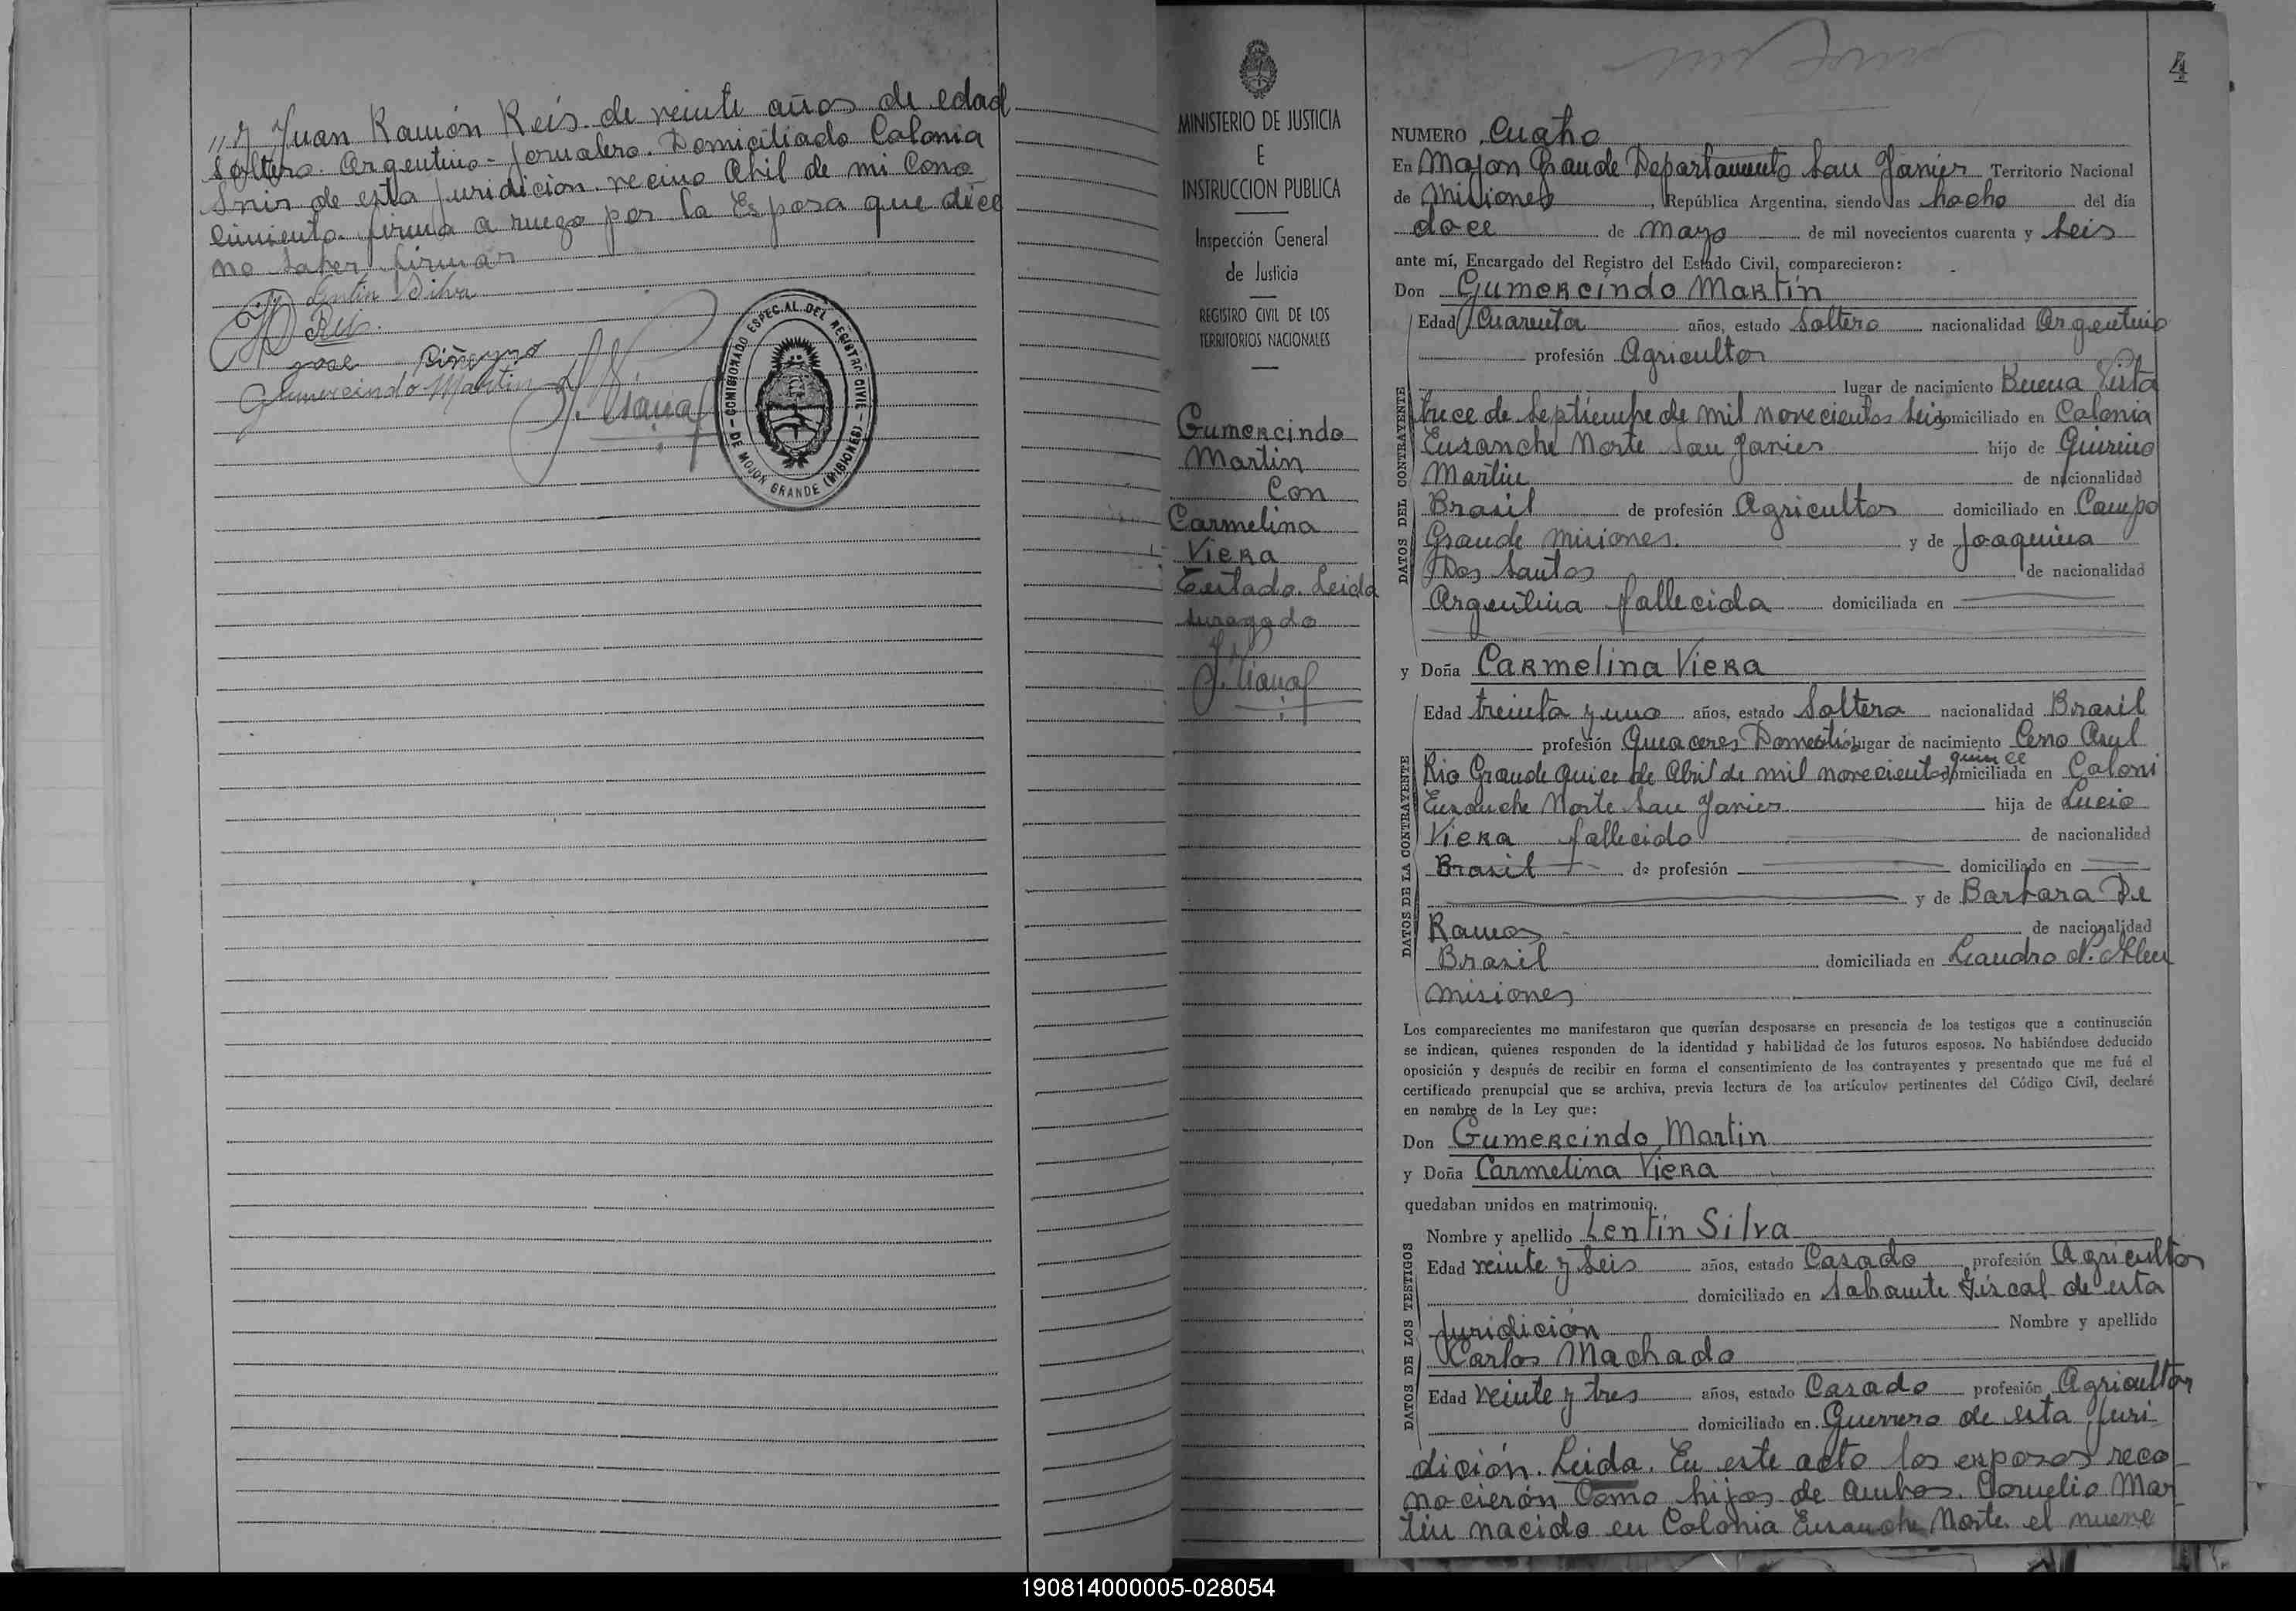 " y Juan Ramón Reis. de veinte años de edad
Soltero. Argentino - Jornalero. Domiciliado Colonia
de esta Juridición. vecino Abil de mi Cono
cimiento. firma a ruego por la Esposa que dice
no saber firmar
Lentin Silva
Reis.
Jose Piñeyro
Gumercindo Martin
COMISIONADO ESPECIAL DEL REGISTRO CIVIL
DE MOJON GRANDE (MISIONES)
MINISTERIO DE JUSTICIA
E
INSTRUCCION PUBLICA
Inspección General
de Justicia
REGISTRO CIVIL DE LOS
TERRITORIOS NACIONALES
Gumercindo
Martin
Con
Carmelina
Viera
Testado. Leida
4
NUMERO Cuatro
En Mojon Grande Departamento San Javier Territorio Nacional
de Misiones, República Argentina, siendo las hocho del día
doce de Mayo de mil novecientos cuarenta y Seis
ante mí, Encargado del Registro del Estado Civil, comparecieron:
Don Gumercindo Martín
DATOS DEL CONTRAYENTE
Edad Cuarenta años, estado Soltero nacionalidad Argentino
profesión Agricultor
lugar de nacimiento Buena Vista
trece de Septiembre de mil novecientos Seis domiciliado en Colonia
Ensanche Norte San Javier hijo de Quirino
Martin de nacionalidad
Brasil de profesión Agricultor domiciliado en Campo
Grande Misiones. y de Joaquina
Dos Santos de nacionalidad
Argentina fallecida domiciliada en
y Doña Carmelina Viera
DATOS DE LA CONTRAYENTE
Edad treinta y uno años, estado Soltera nacionalidad Brasil
profesión Quiaceres Domestico lugar de nacimiento Cerro Asul
quince
Rio Grande Quice de Abril de mil novecientos domiciliada en Coloni
Ensanche Norte San Javier hija de Lucio
Viera fallecido de nacionalidad
Brasil de profesión domiciliado en
y de Barbara De
Ramos de nacionalidad
Brasil domiciliada en Leandro N. Alem
Misiones
Los comparecientes me manifestaron que querían desposarse en presencia de los testigos que a continuación
se indican, quienes responden de la identidad y habilidad de los futuros esposos. No habiéndose deducido
oposición y después de recibir en forma el consentimiento de los contrayentes y presentado que me fué el
certificado prenupcial que se archiva, previa lectura de los artículos pertinentes del Código Civil, declaré
en nombre de la Ley que:
Don Gumercindo Martin
y Doña Carmelina Viera
quedaban unidos en matrimonio.
DATOS DE LOS TESTIGOS
Nombre y apellido Lentín Silva
Edad veinte y Seis años, estado Casado profesión Agricultor
domiciliado en Sobrante Fiscal de esta
Juridición Nombre y apellido
Carlos Machado
Edad veinte y tres años, estado Casado profesión Agricultor
domiciliado en Guerrero de esta Juri
dición. Leida. En este acto los esposos reco
nocierón Como hijos de ambos. Cornelio Mar
tin nacido en Colonia Ensanche Norte el nueve
190814000005-028054